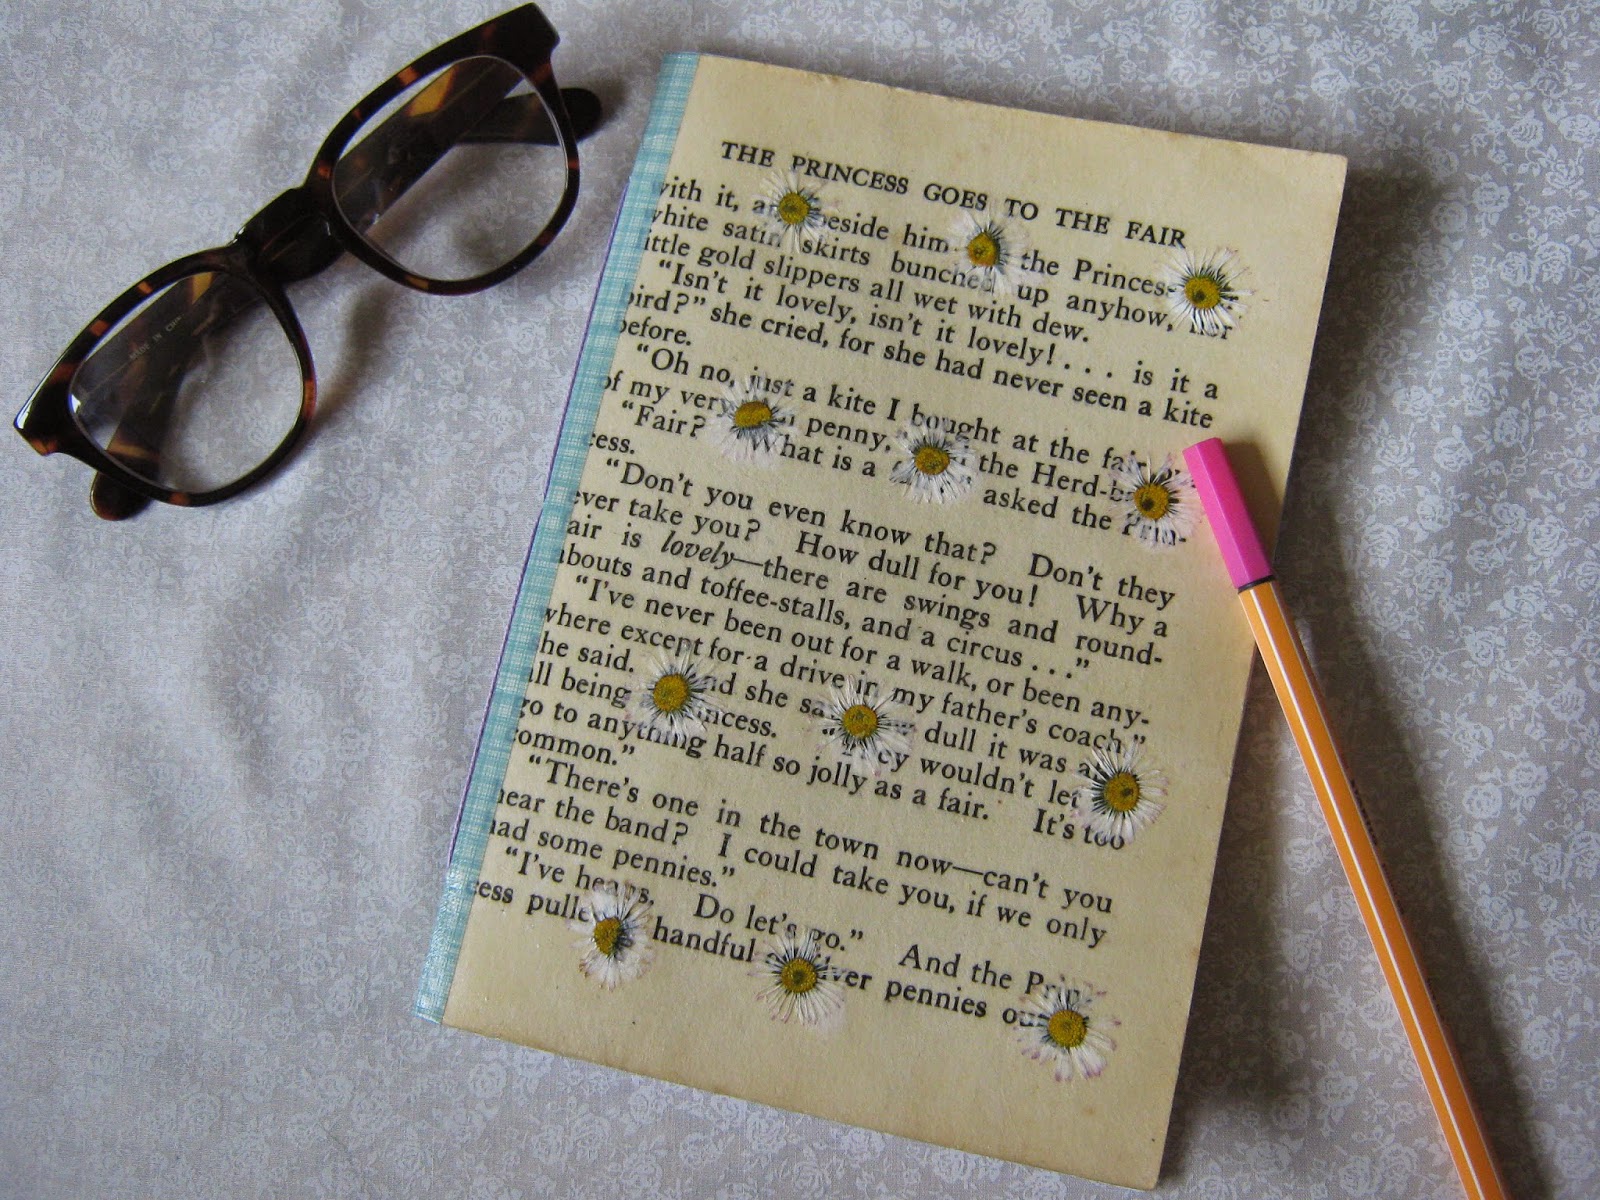 THE PRINCESS GOES TO THE FAIR
with it, beside him the Princess
white satin skirts bunched up anyhow, her
little gold slippers all wet with dew.
“Isn't it lovely, isn't it lovely! . . . is it a
bird?” she cried, for she had never seen a kite
before.
“Oh no, just a kite I bought at the fair
of my very penny, the Herd-
“Fair? What is a asked the Prin-
cess.
“Don't you even know that? Don't they
ever take you? How dull for you! Why a
fair is lovely—there are swings and round-
abouts and toffee-stalls, and a circus . . .”
“I've never been out for a walk, or been any-
where except for a drive in my father's coach,”
she said. And she dull it was
all being Princess. “They wouldn't let
go to anything half so jolly as a fair. It's too
common.”
“There's one in the town now—can't you
hear the band? I could take you, if we only
had some pennies.”
“I've heaps. Do let's go.” And the Prin-
cess pulled handful silver pennies out
MADE IN